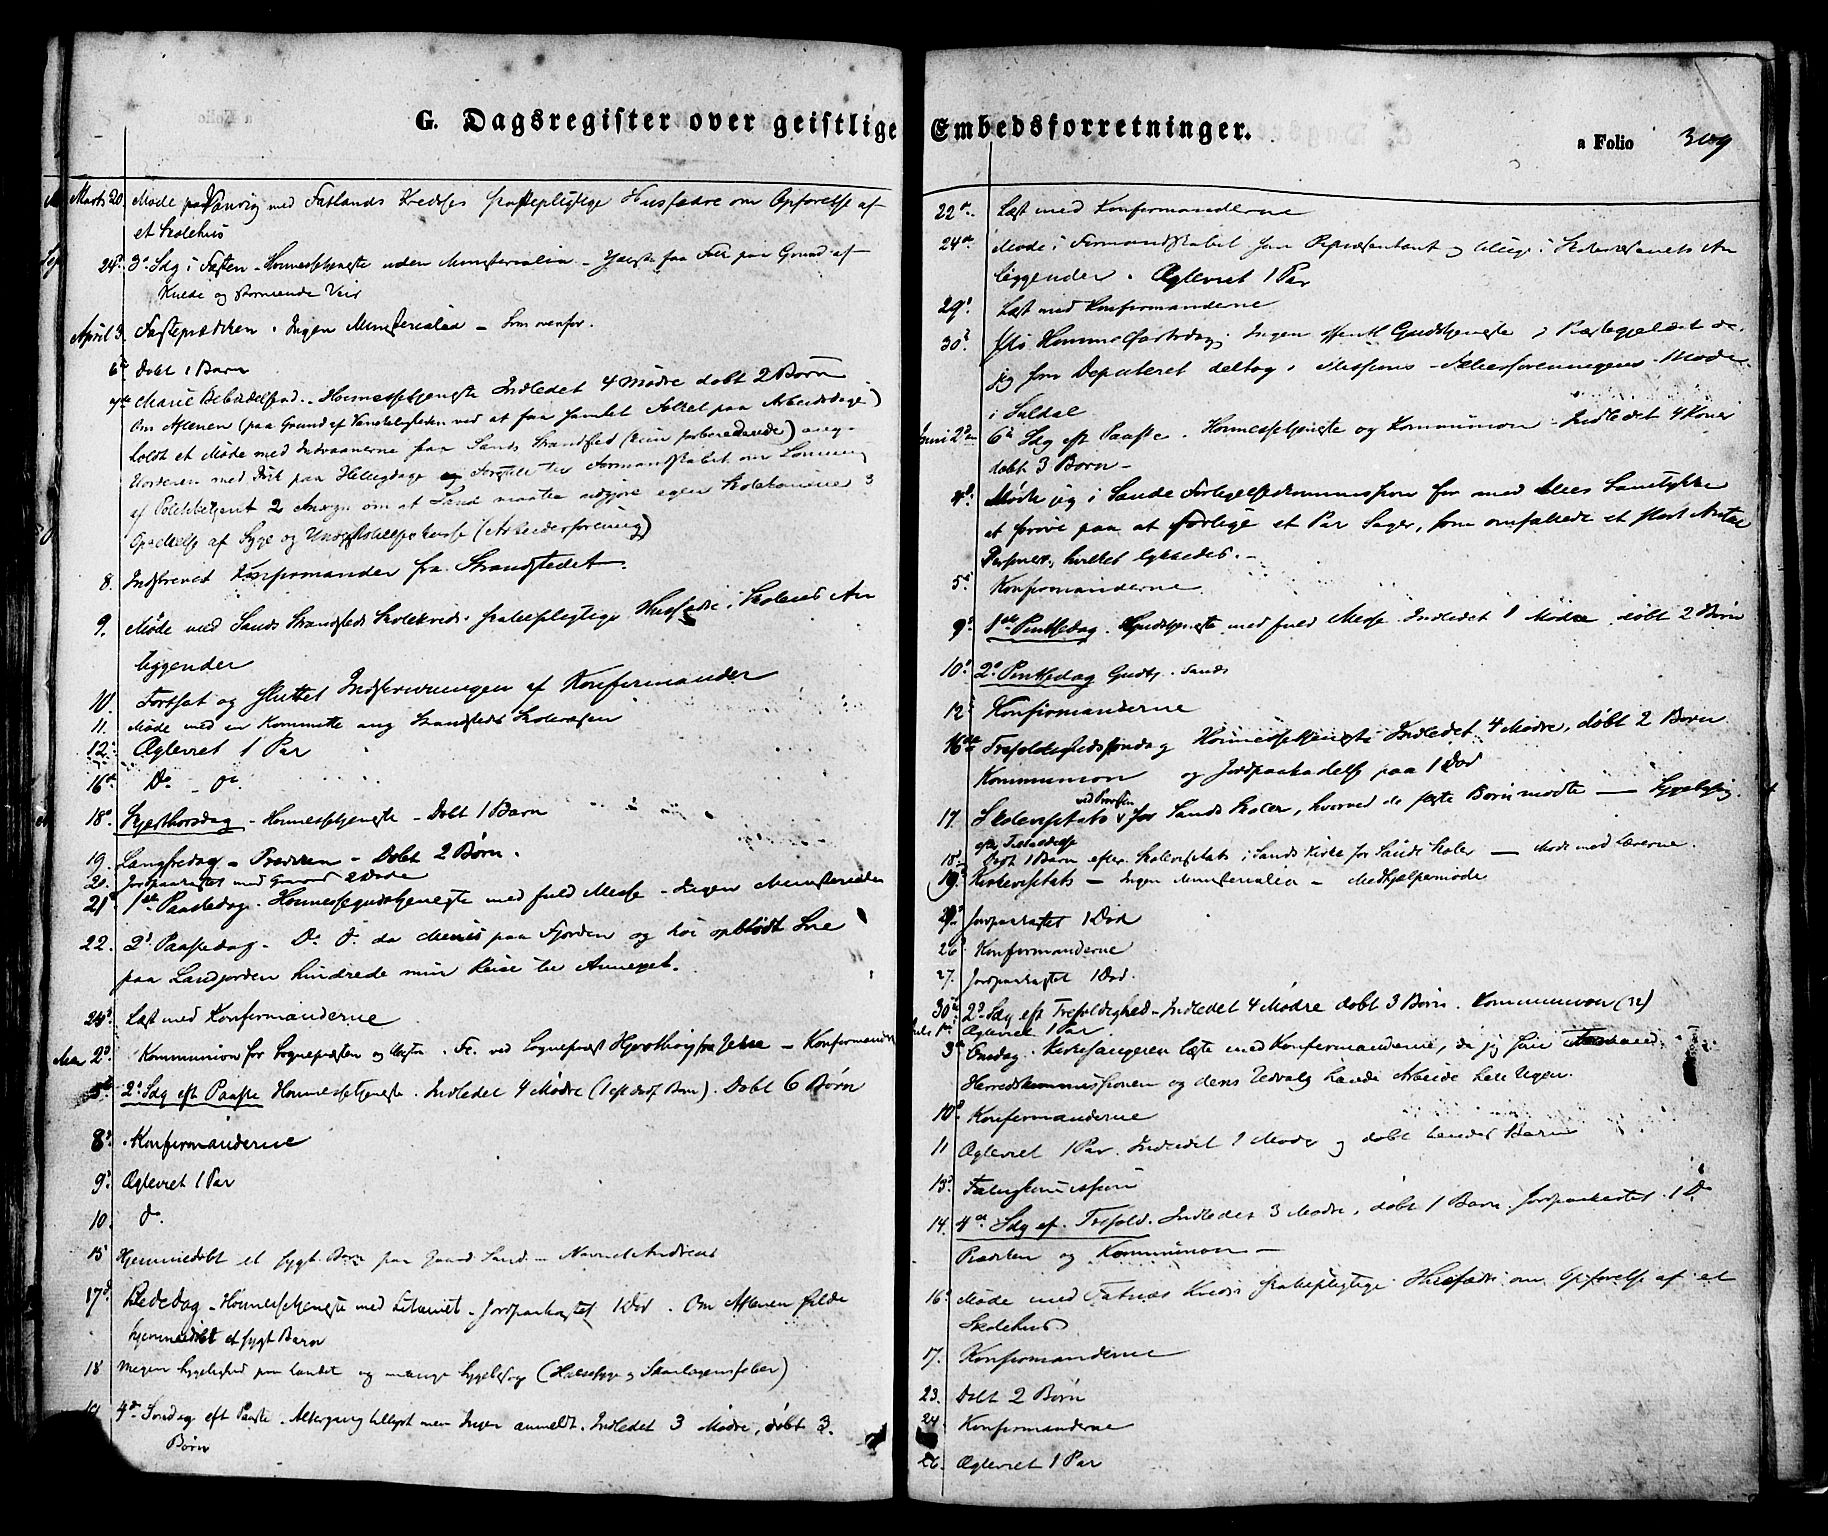 G. Dagsregister over geistlige Embedsforretninger.
a Folio 309
Marts 20. Møde paa med Fatlands Kredses skolepligtige Husfædre om Opførelse af
et Skolehus
24d 3d Sdg i Fasten - Høimessetjeneste uden Ministerialia - faa Folk paa Grund af
Kulde og stormende Veir
April 3. Fasteprædiken. Ingen Ministerialia - Som ovenfor.
6te Døbt 1 Barn
7de Marie Bebudelsesd. - Høimessetjeneste Indledet 4 Mødre døbt 2 Børn
Om Aftenen (paa Grund af Vanskeligheden ved at faa samlet Folket paa Arbeidsdage)
holdt et Møde med Indvaanerne paa Sands Strandsted (kun forberedende) ang
med paa Helligdage og Forstill til Formandskabet om Lønning
af 2 Andrgn om at Sand maatte udgjøre egen Skolekommune 3
Oprettelse af Syge og (Arbeiderforening)
8. Indskrevet Konfirmander fra Strandstedet.
9. Møde med Sands Strandsteds Skolekreds. skolepligtige Husfædre i Skolens An
liggender
10. Fortsat og sluttet Indskrivningen af Konfirmander
11. Møde med en Kommitte ang Strandstedets Skolevæsen
12. Ægteviet 1 Par
16de Do - do.
18d Skjærthorsdag - Høimessetjeneste - Døbt 1 Barn
19. Langfredag - Prædiken - Døbt 2 Børn.
20. Jordpaakastet med Graven 2 Døde
21d 1ste Paaskedag. Høimessegudstjeneste med fuld Messe - Ingen Ministerialia
22. 2d Paaskedag - Do do. da Menis paa Fjorden og høi opblødt Sne
paa Landjorden hindrede min Reise til Annexet.
24d Læst med Konfirmanderne
Mai 2d Kommunion for Sognepræsten og ved Sognepræst fra Jelse - Konfirmander
5d 2d Sdg eft Paaske Høimessetjeneste. Indledet 4 Mødre Døbt 6 Børn
8d Konfirmanderne
9d Ægteviet 1 Par
10. do.
15 Hjemmedøbt et sygt Barn paa Gaard Sand - Navnet Andreas
17d Bededag - Høimessetjeneste med Litaniet - Jordpaakastet 1 Død. Om Aftenen silde
hjemmedøbt et sygt Barn
18 Megen Sygelighed paa Landet og mange Sygebesøg (Halssyge og Skarlagensfeber)
19 4de Søndag eft Paaske. Altergang tillyst men Ingen anmeldt. Indledet 3 Mødre, døbt 3.
Børn
22de. Læst med Konfirmanderne
24de Møde i Formandskabet som Repræsentant og tillige i Skolevæsenets An
liggender. Ægteviet 1 Par
29d Læst med Konfirmanderne
30d Xti Himmelfartsdag. Ingen offentl Gudstjeneste i Præstegjeldet da
jeg som Deputeret deltog i Missions-Fælleforeningens Møde
i Suldal
Juni 2den 6te Sdg eft Paaske. Høimessetjeneste og Kommunion - Indledet 4 Koner
døbt 3 Børn -
4d Mødte jeg i Sande Forligelseskommission for med Alles Samtykke
at prøve paa at forlige et Par Sager, som omfattede et stort Antal
Personer, hvilket lykkedes. -
5d Konfirmanderne
9d 1ste Pintsedag. Gudstjeneste med fuld Messe Indledet 1 Mødre, døbt 2 Børn
10d 2d Pintsedag Gudtj. Sands
12d Konfirmanderne
16de Trefoldighedssøndag Høimessetjeneste Indledet 4 Mødre, døbt 2 Børn
Kommunion og Jordpaakastelse paa 1 Død
17. Skolevisitats ved Provsten for Sands Skoler, hvorved de fleste Børn mødte -
18d Døbt 1 Barn efter Skolevisitats i Sands Kirke for Sands Skoler - Møde med Lærerne.
19d Kirkevisitats - Ingen Ministerialia - Medhjælpermøde
Jordpaakastet 1 Død
26d Konfirmanderne
27. Jordpaakastet 1 Død.
30te 2d Sdg eft Trefoldighed - Indledet 4 Mødre døbt 3 Børn. Kommunion (32)
Juli 1ste Ægteviet 1 Par.
3d Onsdag. Kirkesangeren læste med Konfirmanderne, da jeg som
Herredskommissionen og dens Udvalg havde Arbeide hele Ugen.
10d Konfirmanderne
11 Ægteviet 1 Par. Indledet 1 Moder og døbt hendes Barn
13d
14. 4de Sdg ef. Trefold. Indledet 3 Mødre, døbt 1 Barn. Jordpaakastet 1 D.
Prædiken og Kommunion -
16d Møde med Fatnæs Kreds skolepligtige Husfædre om Opførelse af et
Skolehus
17. Konfirmanderne
23. Døbt 2 Børn
24. Konfirmanderne
26. Ægteviet 1 Par